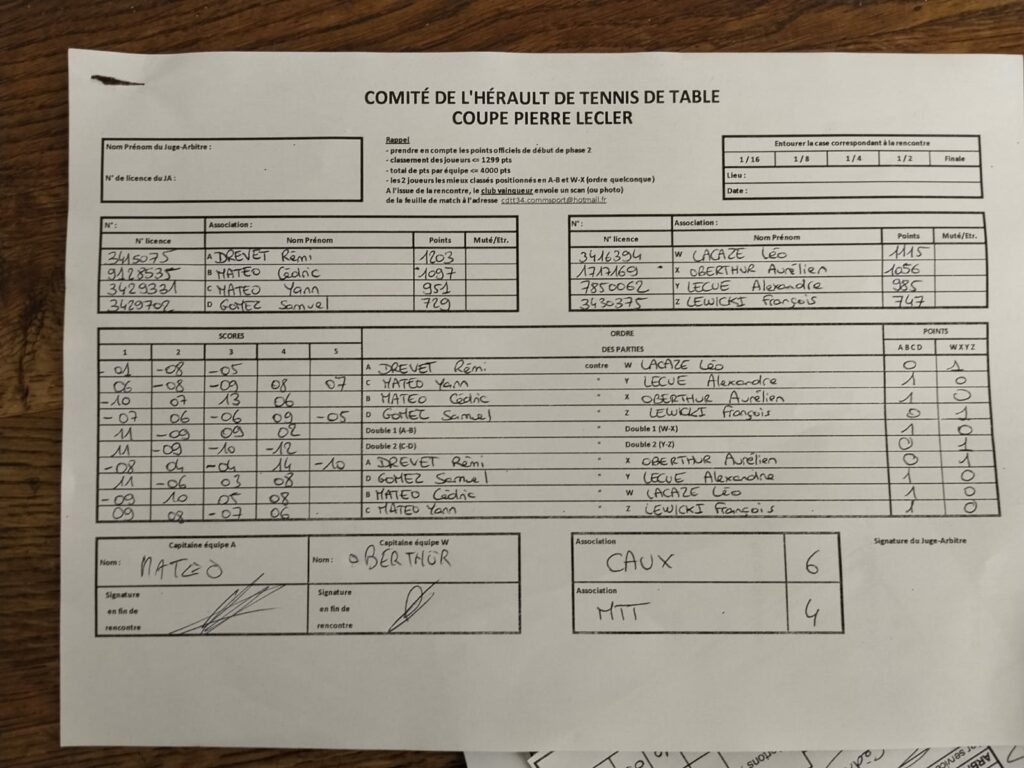 COMITÉ DE L'HÉRAULT DE TENNIS DE TABLE
COUPE PIERRE LECLER
Nom Prénom du Juge-Arbitre :
N° de licence du JA :
Rappel
- prendre en compte les points officiels de début de phase 2
- classement des joueurs <= 1299 pts
- total de pts par équipe <= 4000 pts
- les 2 joueurs les mieux classés positionnés en A-B et W-X (ordre quelconque)
A l'issue de la rencontre, le club vainqueur envoie un scan (ou photo)
de la feuille de match à l'adresse cdtt34.commsport@hotmail.fr
Entourer la case correspondant à la rencontre
1/16 1/8 1/4 1/2 Finale
Lieu :
Date :
N° : Association :
N° licence Nom Prénom Points Muté/Etr.
3415075 A DREVET Rémi 1203
9128535 B MATEO Cédric 1097
3429331 C MATEO Yann 951
3429702 D GOMEZ Samuel 729
N° : Association :
N° licence Nom Prénom Points Muté/Etr.
3416394 W LACAZE Léo 1115
1717169 X OBERTHUR Aurélien 1056
7850062 Y LECUE Alexandre 985
3430375 Z LEWICKI François 747
SCORES ORDRE POINTS
1 2 3 4 5 DES PARTIES A B C D W X Y Z
-01 -08 -05 A DREVET Rémi contre W LACAZE Léo 0 1
06 -08 -09 08 07 C MATEO Yann " Y LECUE Alexandre 1 0
-10 07 13 06 B MATEO Cédric " X OBERTHUR Aurélien 1 0
-07 06 -06 09 -05 D GOMEZ Samuel " Z LEWICKI François 0 1
11 -09 09 02 Double 1 (A-B) " Double 1 (W-X) 1 0
11 -09 -10 -12 Double 2 (C-D) " Double 2 (Y-Z) 0 1
-08 04 -04 14 -10 A DREVET Rémi " X OBERTHUR Aurélien 0 1
11 -06 03 08 D GOMEZ Samuel " Y LECUE Alexandre 1 0
-09 10 05 08 B MATEO Cédric " W LACAZE Léo 1 0
09 08 -07 06 C MATEO Yann " Z LEWICKI François 1 0
Capitaine équipe A Capitaine équipe W
Nom : MATEO Nom : OBERTHUR
Signature en fin de rencontre
Signature en fin de rencontre
Association
CAUX 6
Association
MTT 4
Signature du Juge-Arbitre